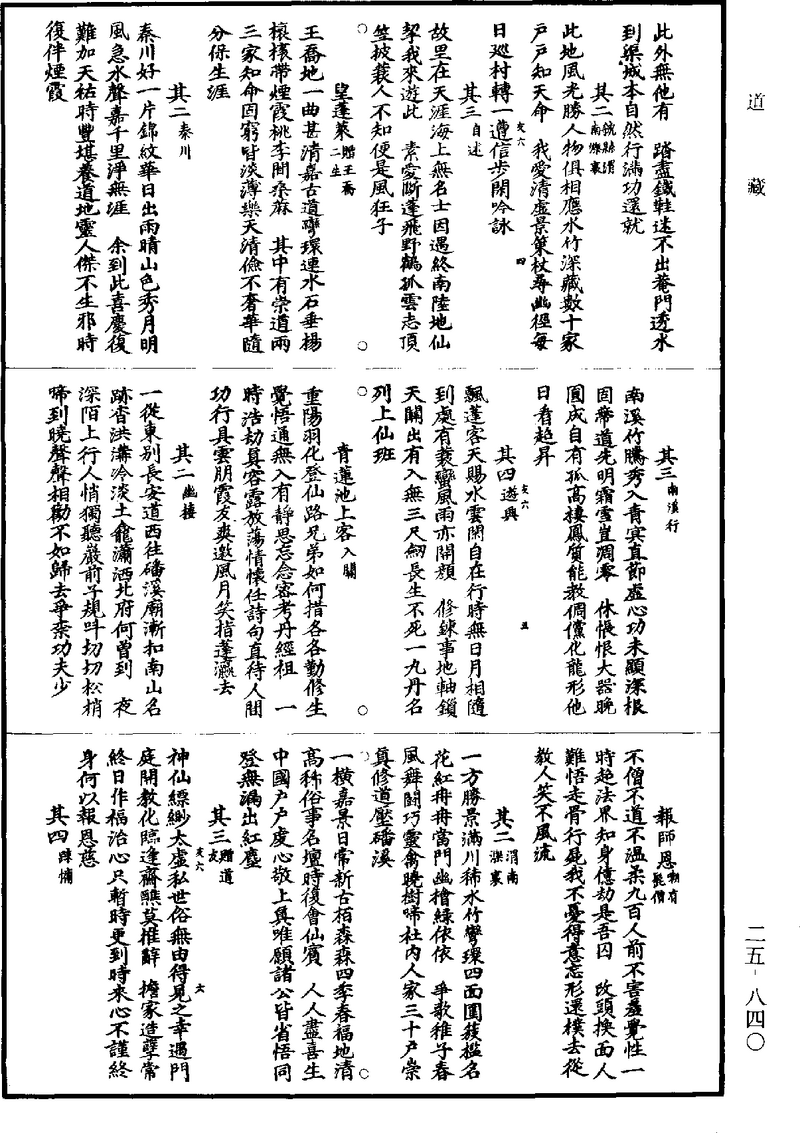 道藏
此外無他有　踏盡鐵鞋迷不出菴門透水
到渠成本自然行滿功還就
其二虢縣渭南㶚裏
此地風光勝人物俱相應水竹深藏數十家
戶戶知天命　我愛清虛景策杖尋幽徑每
日巡村轉一遭信步閑吟詠
其三自述
故里在天涯海上無名士因遇終南陸地仙
挈我來遊此　素愛斷蓬飛野鶴孤雲志頂
笠披蓑人不知便是風狂子
望蓬萊贈王喬二生
王喬地一曲甚清嘉古道彎環連水石垂楊
檟㯶帶煙霞桃李間桑麻　其中有崇道兩
三家知命固窮皆淡薄樂天清儉不奢華隨
分保生涯
其二秦川
秦川好一片錦紋華日出雨晴山色秀月明
風急水聲嘉千里淨無涯　余到此喜慶復
難加天祐時豐堪養道地靈人傑不生邪時
復伴煙霞
其三南溪行
南溪竹騰秀入青冥直節虛心功未顯深根
固蒂道先明霜雪豈凋零　休悵恨大器晚
圓成自有孤高棲鳳質能教倜儻化龍形他
日看超昇
其四遊興
飄蓬客天賜水雲閑自在行時無日月相隨
到處有蓑蠻風雨亦開顏　修鍊事地軸鎖
天關出有入無三尺劒長生不死一丸丹名
列上仙班
青蓮池上客入關
重陽羽化登仙路兄弟如何措各各勤修生
覺悟通無入有靜思忘念密考丹經祖　一
時浩劫真容露放蕩情懷任詩句直待人間
功行具雲朋霞友爽邀風月笑指蓬瀛去
其二幽棲
一從東別長安道西往磻溪廟漸扣南山名
跡杳洪溝冷淡土龕瀟洒北府何曾到　夜
深陌上行人悄獨聽巖前子規呌切切松梢
啼到曉聲聲相勸不如歸去爭柰功夫少
報師恩物有髡僧
不僧不道不溫柔九百人前不害羞覺性一
時超法界知身億劫是吾囚　改頭換面人
難悟走骨行屍我不憂得意忘形還樸去從
教人笑不風流
其二渭南㶚裏
一方勝景滿川稀水竹彎環四面圍蔟檻名
花紅冉冉當門幽檜綠依依　爭歌稚子春
風舞鬪巧靈禽曉樹啼社內人家三十戶崇
真修道壓磻溪
一橫嘉景日常新古栢森森四季春福地清
高稀俗事名壇時復會仙賓　人人盡喜生
中國戶戶虔心敬上真唯願諸公皆省悟同
登無漏出紅塵
其三贈道友
神仙縹緲太虛私世俗無由得見之幸過門
庭開教化臨逢齋醮莫推辭　擔家造孽常
終日作福治心只暫時更到時來心不謹終
身何以報恩慈
其四疎慵
二五-八四〇